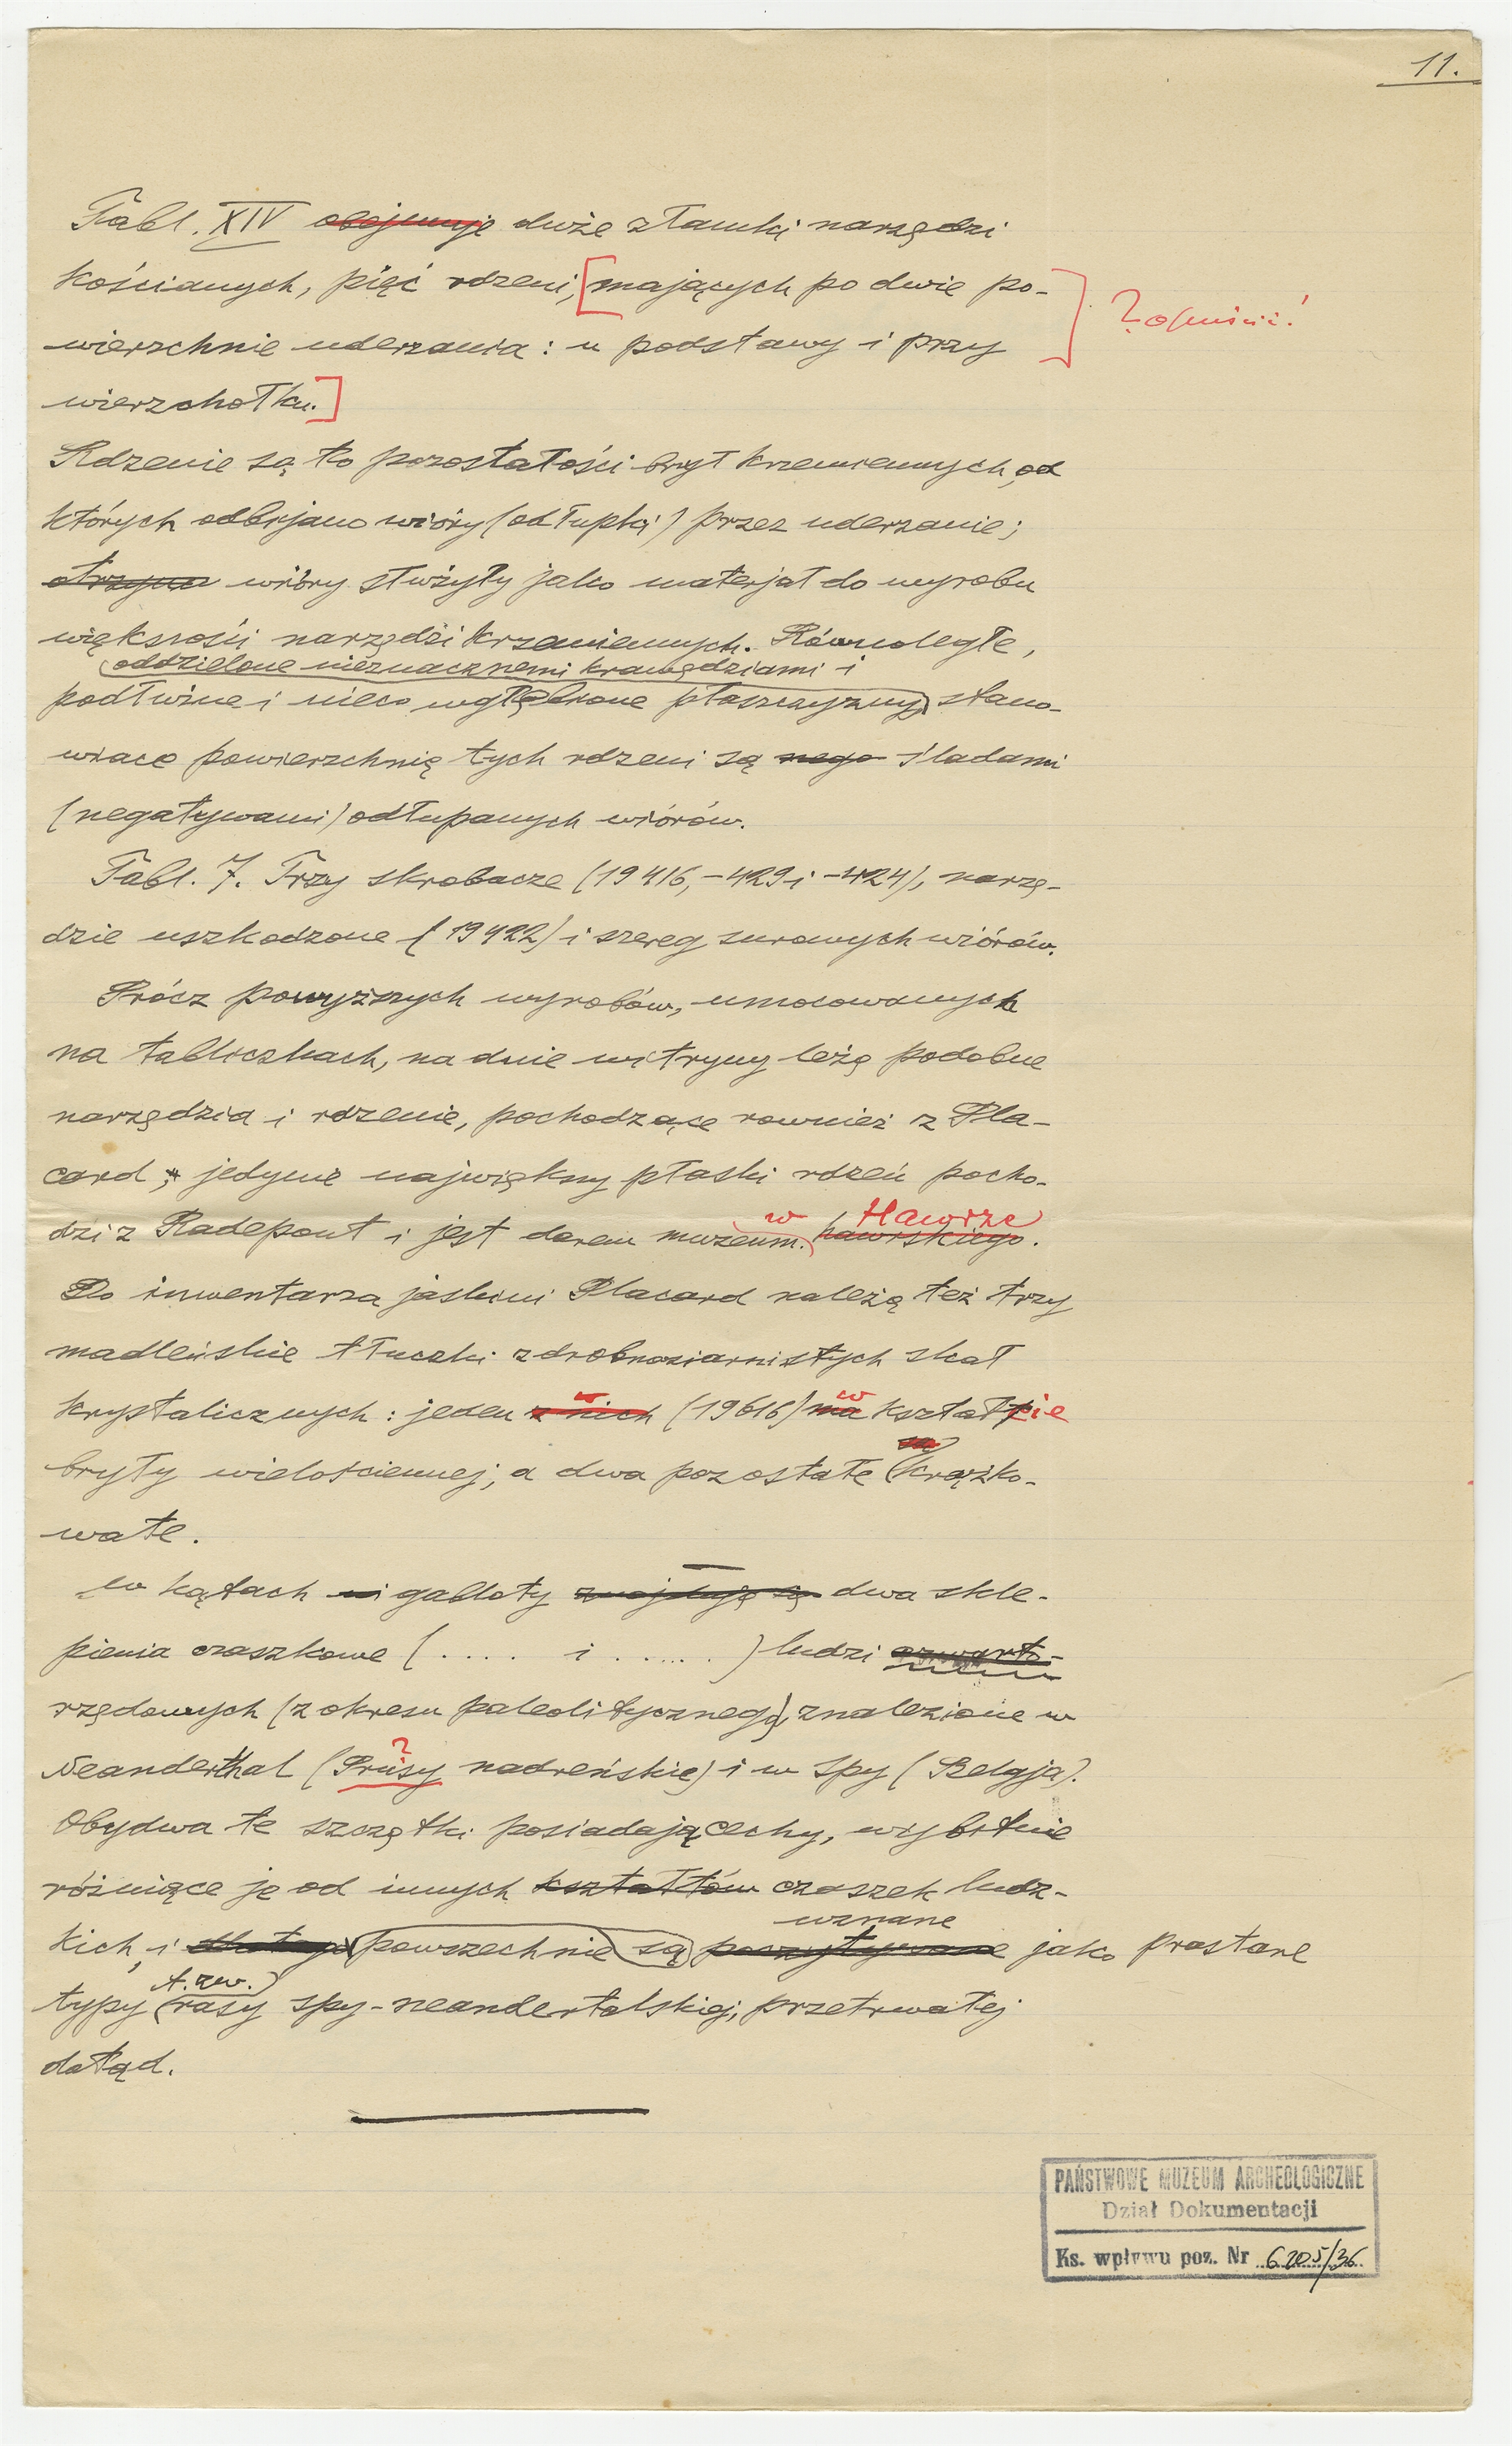 11.
Tabl. XIV obejmuje duże złamki narzędzi
kościanych, pięć rdzeni, [mających po dwie po-
wierzchnie uderzania: u podstawy i przy
wierzchołku.]
? opuścić!
Rdzenie są to pozostałości brył krzemiennych, od
których odbijano wióry (odłupki) przez uderzanie;
otrzyma wióry służyły jako materjał do wyrobu
większości narzędzi krzemiennych. Równoległe,
oddzielone nieznacznemi krawędziami i
podłużne i nieco wgłębione płaszczyzny, stano-
wiące powierzchnię tych rdzeni są nega śladami
(negatywami) odłupanych wiórów.
Tabl. 7. Trzy skrobacze (19416, -429 i -424), narzę-
dzie uszkodzone (19422) i szereg surowych wiórów.
Prócz powyższych wyrobów, umocowanych
na tabliczkach, na dnie witryny leżą podobne
narzędzia i rdzenie, pochodzące rownież z Pla-
card; jedynie największy płaski rdzeń pocho-
w Hawrze
dzi z Radepont i jest darem muzeum. hawrskiego.
Do inwentarza jaskini Placard należą też trzy
madleńskie tłuczki z drobnoziarnistych skał
w w
krystalicznych: jeden z nich (19616) ma kształcie
są
bryły wielościennej, a dwa pozostałe krążko-
wate.
W kątach wi gabloty znajdują są dwa skle-
pienia czaszkowe (.... i ......) ludzi czwarto-
rzędowych (z okresu paleolitycznego), znalezione w
?
Neanderthal (Prusy nadreńskie) i w Spy (Belgja).
Obydwa te szczątki posiadają cechy, wybitnie
różniące je od innych kształtów czaszek ludz-
uznane
kich, i powszechnie są poczytywane jako prastare
t. zw.
typy rasy spy-neandertalskiej, przetrwałej
dotąd.
PAŃSTWOWE MUZEUM ARCHEOLOGICZNE
Dział Dokumentacji
Ks. wpływu poz. Nr 6205/36